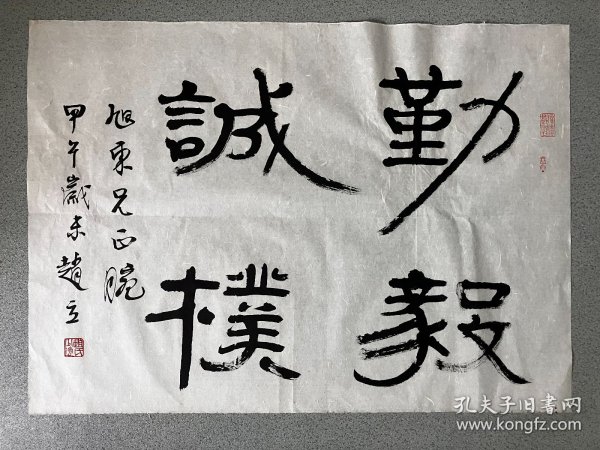 勤毅
誠樸
旭東兄正腕
甲午歲末趙立
孔夫子旧书网
www.kongfz.com